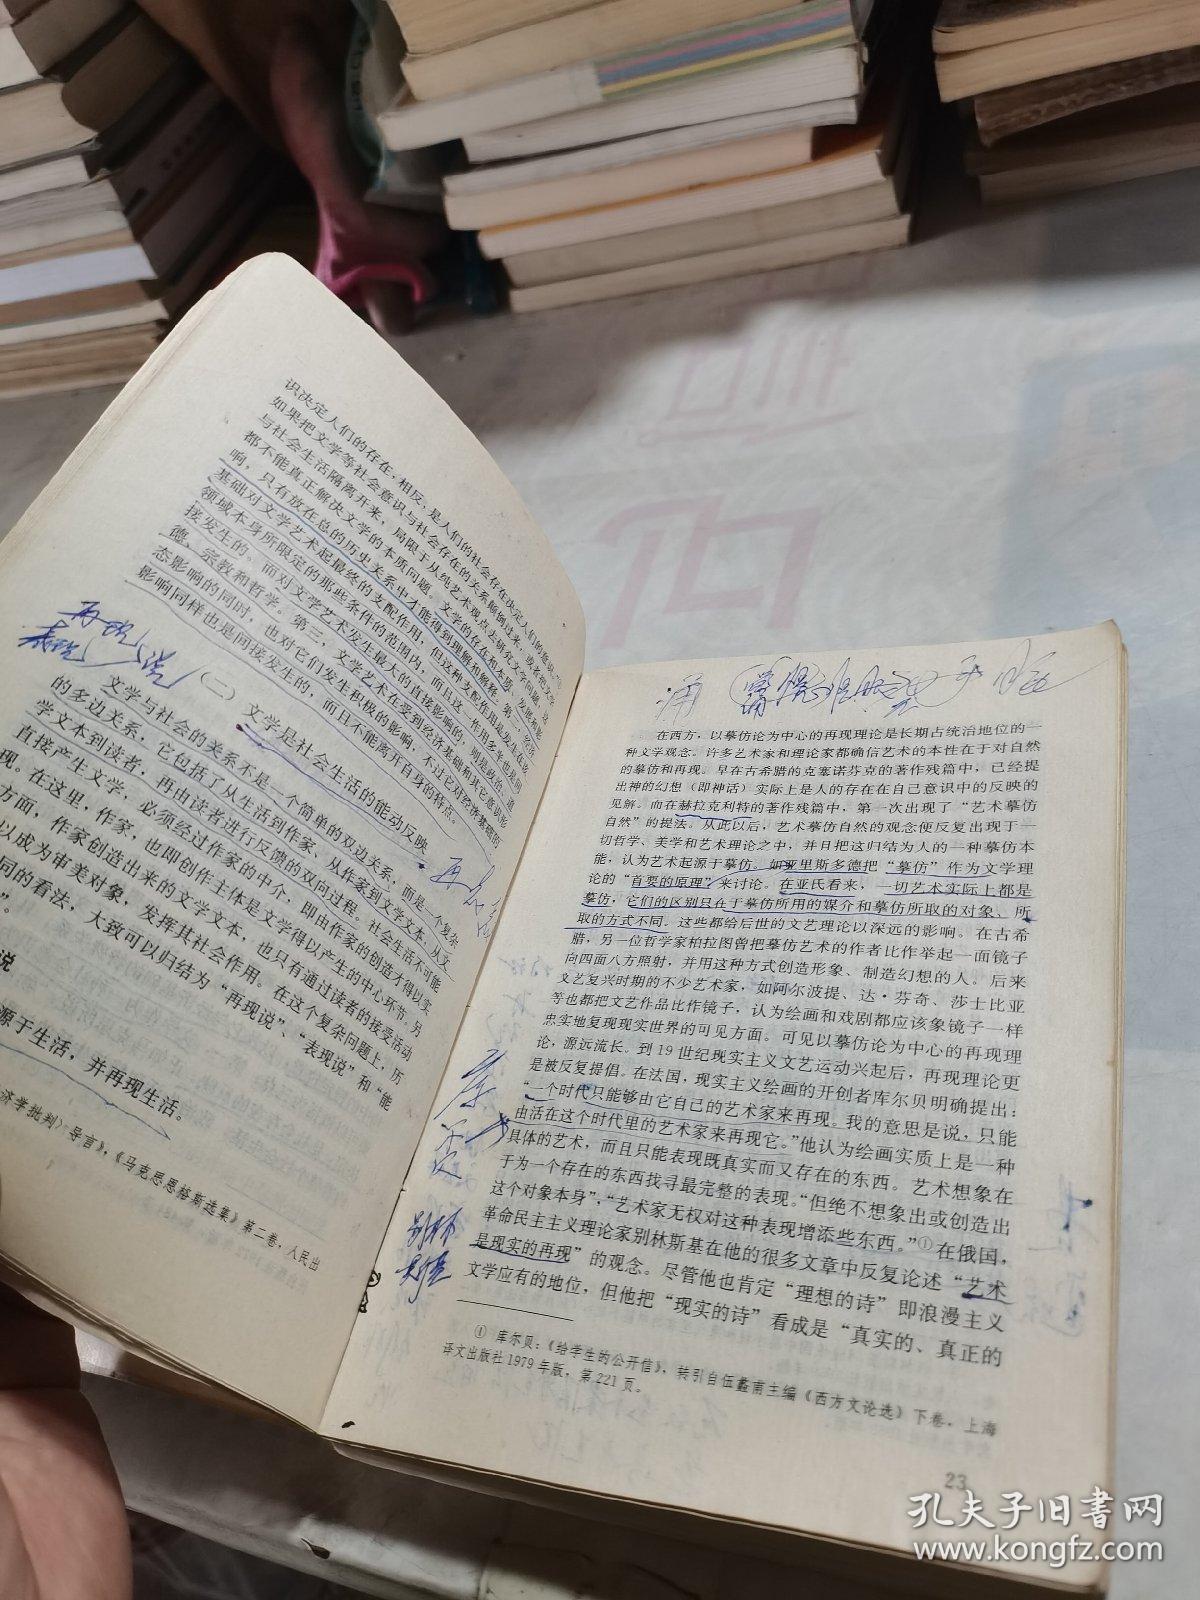 识决定人们的存在，相反，是人们的社会存在决定人们的意识。”①
如果把文学等社会意识与社会存在的关系颠倒过来，或者把文学
与社会生活隔离开来，局限于从纯艺术观点去研究文学问题，这
都不能真正解决文学的本质问题。文学的存在和本质、发展和影
响，只有放在总的历史关系中才能得到理解和解释。第二，经济
基础对文学艺术起最终的支配作用，但这种支配作用是发生在该
领域本身所限定的那些条件的范围内，而且这一作用多半也是间
接发生的。而对文学艺术发生最大的直接影响的，则是政治、道
德、宗教和哲学。第三，文学艺术在受到经济基础和其它意识形
态影响的同时，也对它们发生积极的影响，不过它对经济基础的
影响同样也是间接发生的，而且不能离开自身的特点。
再现
表现
说
（二）文学是社会生活的能动反映
文学与社会的关系不是一个简单的双边关系，而是一个复杂
的多边关系，它包括了从生活到作家、从作家到文学文本、从文
学文本到读者，再由读者进行反馈的双向过程。社会生活不可能
直接产生文学，必须经过作家的中介，即由作家的创造才得以实
现。在这里，作家，也即创作主体是文学得以产生的中心环节。另
方面，作家创造出来的文学文本，也只有通过读者的接受活动
以成为审美对象，发挥其社会作用。在这个复杂问题上，历
同的看法，大致可以归结为“再现说”、“表现说”和“能
”。
说
源于生活，并再现生活。
济学批判〉导言》，《马克思恩格斯选集》第二卷，人民出
在西方，以摹仿论为中心的再现理论是长期占统治地位的一
种文学观念。许多艺术家和理论家都确信艺术的本性在于对自然
的摹仿和再现。早在古希腊的克塞诺芬克的著作残篇中，已经提
出神的幻想（即神话）实际上是人的存在在自己意识中的反映的
见解。而在赫拉克利特的著作残篇中，第一次出现了“艺术摹仿
自然”的提法。从此以后，艺术摹仿自然的观念便反复出现于一
切哲学、美学和艺术理论之中，并日把这归结为人的一种摹仿本
能，认为艺术起源于摹仿。如亚里斯多德把“摹仿”作为文学理
论的“首要的原理”来讨论。在亚氏看来，一切艺术实际上都是
摹仿，它们的区别只在于摹仿所用的媒介和摹仿所取的对象、所
取的方式不同。这些都给后世的文艺理论以深远的影响。在古希
腊，另一位哲学家柏拉图曾把摹仿艺术的作者比作举起一面镜子
向四面八方照射，并用这种方式创造形象、制造幻想的人。后来
文艺复兴时期的不少艺术家，如阿尔波提、达·芬奇、莎士比亚
等也都把文艺作品比作镜子，认为绘画和戏剧都应该象镜子一样
忠实地复现现实世界的可见方面。可见以摹仿论为中心的再现理
论，源远流长。到19世纪现实主义文艺运动兴起后，再现理论更
是被反复提倡。在法国，现实主义绘画的开创者库尔贝明确提出：
“一个时代只能够由它自己的艺术家来再现。我的意思是说，只能
由活在这个时代里的艺术家来再现它。”他认为绘画实质上是一种
具体的艺术，而且只能表现既真实而又存在的东西。艺术想象在
于为一个存在的东西找寻最完整的表现。“但绝不想象出或创造出
这个对象本身”，“艺术家无权对这种表现增添些东西。”①在俄国，
革命民主主义理论家别林斯基在他的很多文章中反复论述“艺术
是现实的再现”的观念。尽管他也肯定“理想的诗”即浪漫主义
文学应有的地位，但他把“现实的诗”看成是“真实的、真正的
① 库尔贝：《给学生的公开信》，转引自伍蠡甫主编《西方文论选》下卷，上海
译文出版社1979年版，第221页。
23
孔夫子旧书网
www.kongfz.com